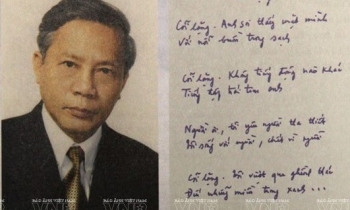 Cõi lặng. Anh soi thấy mặt mình
Với nỗi buồn trong sạch
Cõi lặng. Không tiếng động nào khác
Tiếng đập trái tim anh
Người ơi, tôi yêu người tha thiết
Tôi sống với người, chết vì người
Cõi lặng. Tôi vượt qua ghềnh thác
Đến những miền trong xanh...
BÁO ẢNH VIỆT NAM
BÁO ẢNH VIỆT NAM